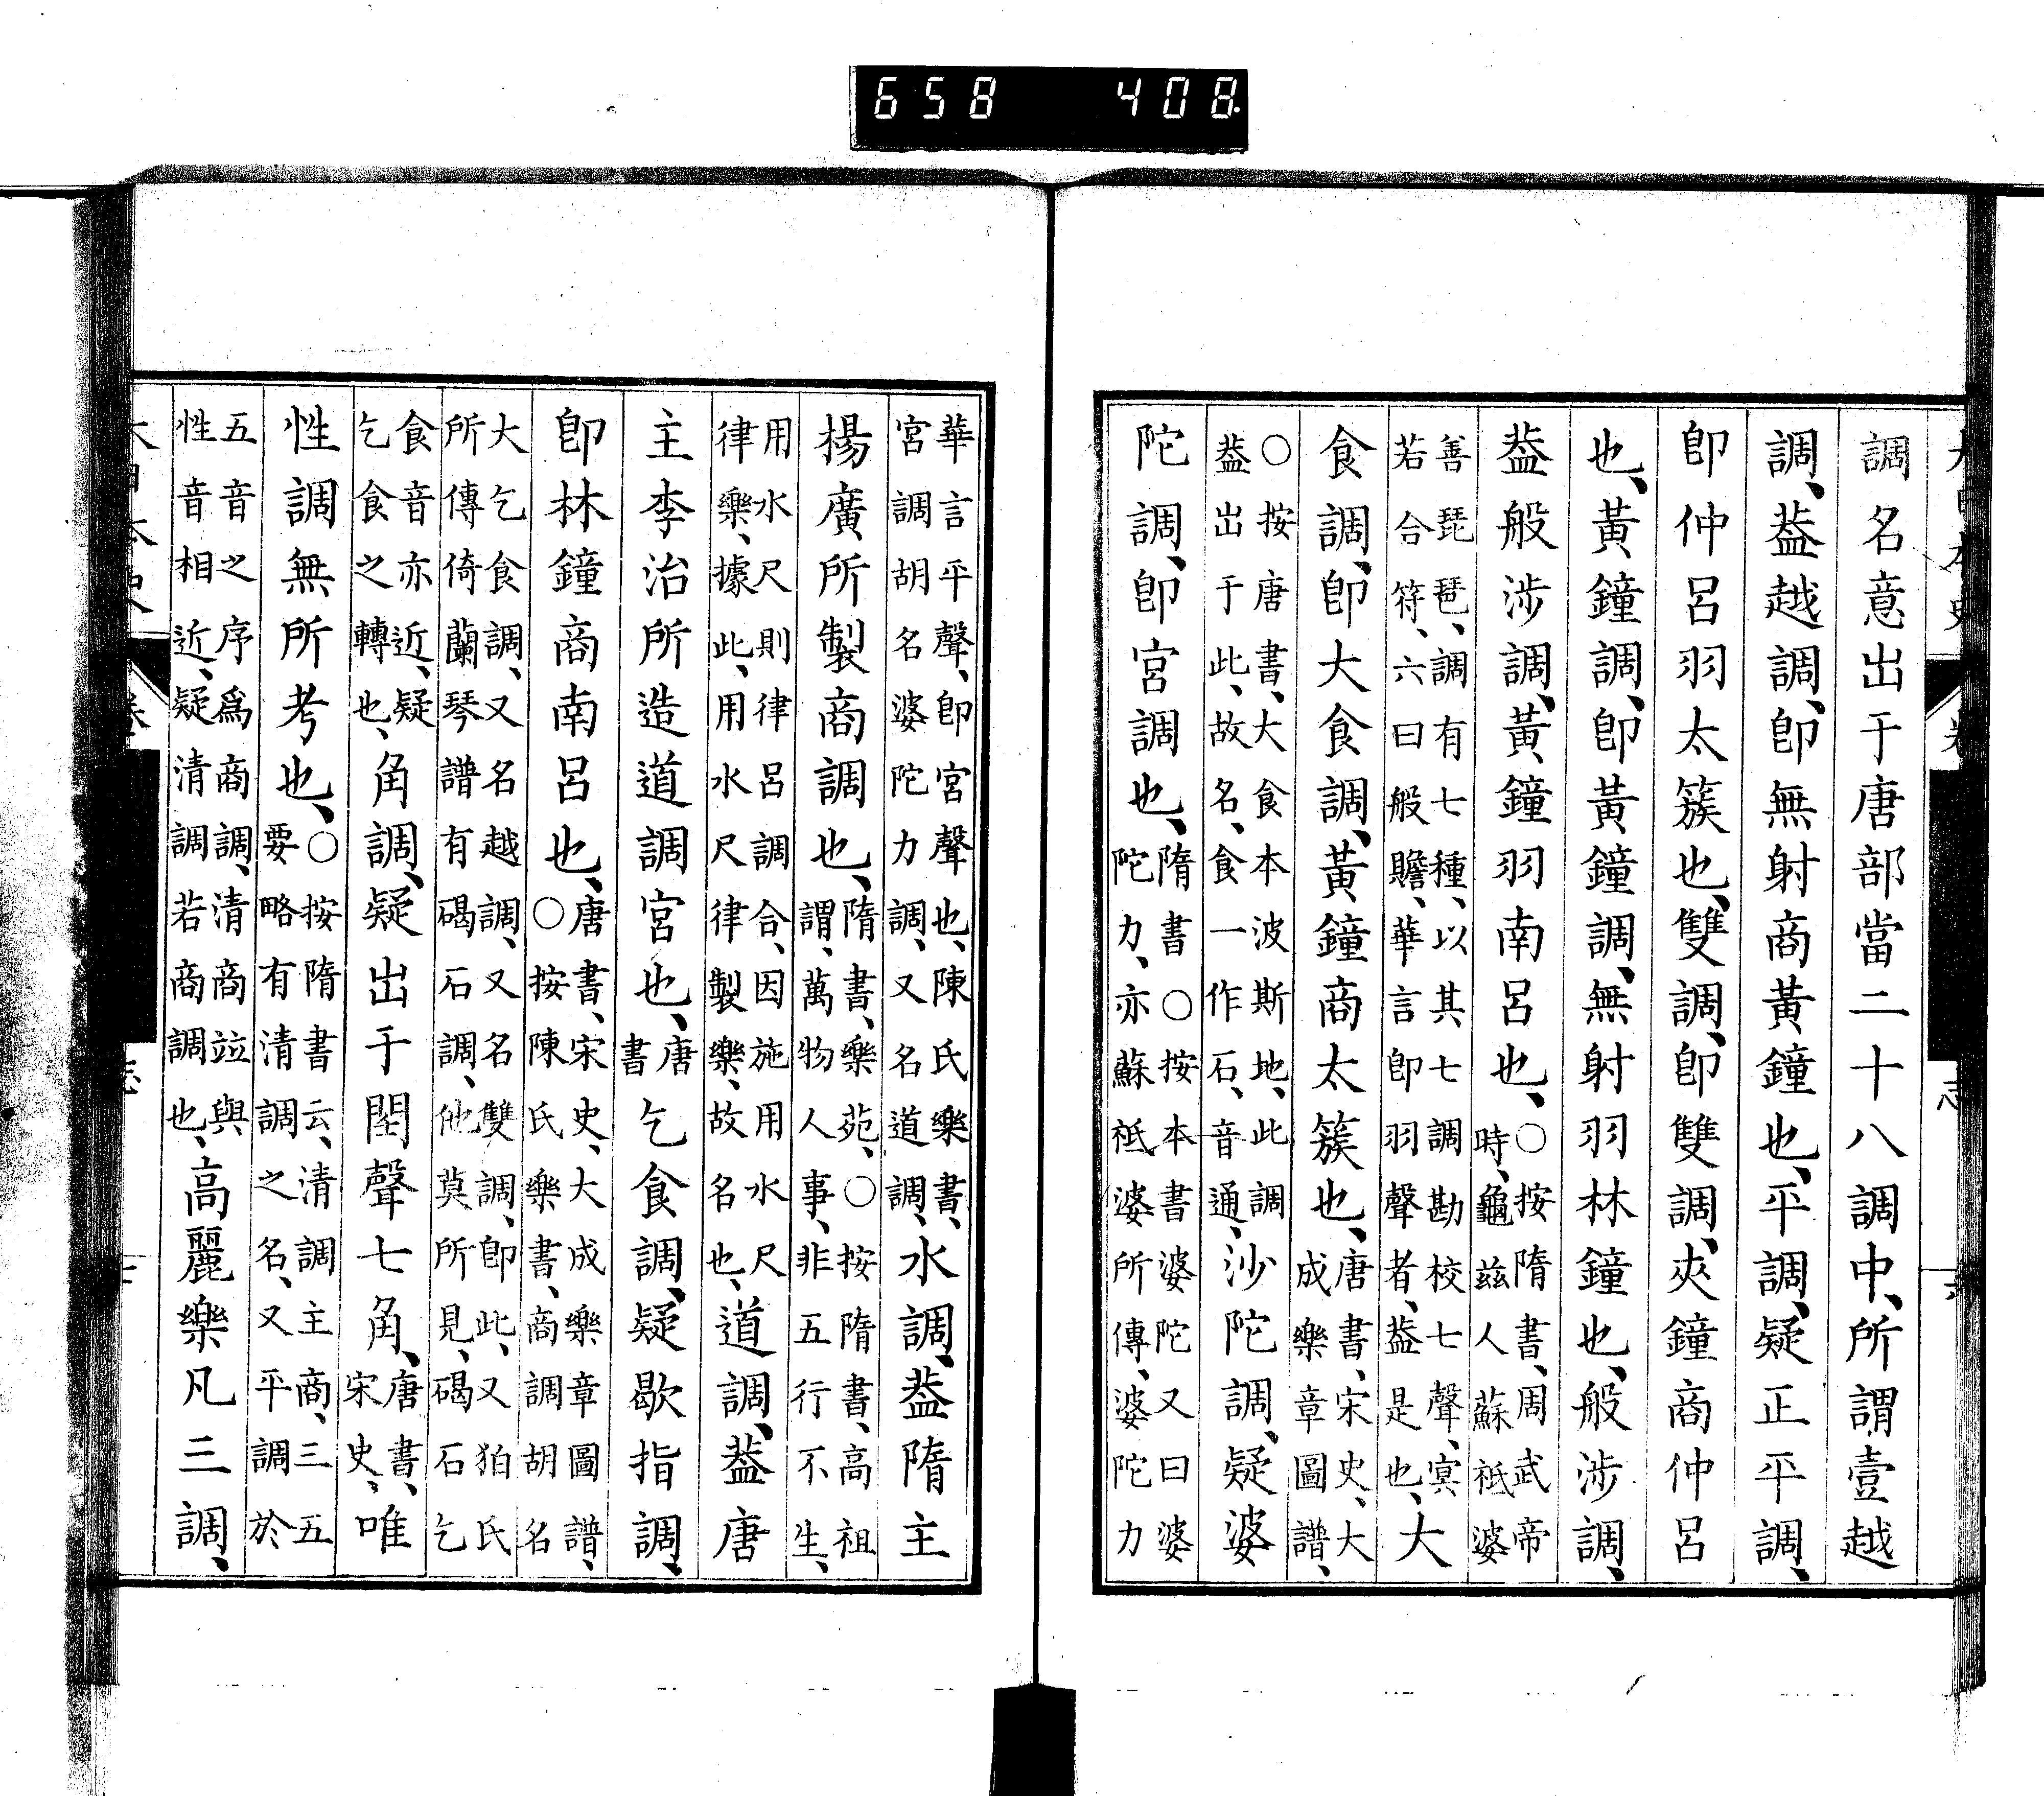 658 408
調名意出于唐部當二十八調中、所謂壹越
調、葢越調、卽無射商黃鐘也、平調、疑正平調、
卽仲呂羽太簇也、雙調、卽雙調、夾鐘商仲呂
也、黃鐘調、卽黃鐘調、無射羽林鐘也、般涉調、
葢般涉調、黃鐘羽南呂也、
○按隋書、周武帝
時、龜茲人蘇祗婆
善琵琶、調有七種、以其七調勘校七聲、冥
若合符、六曰般贍、華言卽羽聲者、葢是也、
大
食調、卽大食調、黃鐘商太簇也、
唐書、宋史、大
成樂章圖譜、
○按唐書、大食本波斯地、此調
葢出于此、故名、食一作石、音通、
沙陀調、疑婆
陀調、卽宮調也、
隋書○按本書婆陀又曰婆
陀力、亦蘇祗婆所傳、婆陀力
華言平聲、卽宮聲也、陳氏樂書、
宮調胡名婆陀力調、又名道調、
水調、葢隋主
揚廣所製商調也、
隋書、樂苑、○按隋書、高祖
謂、萬物人事、非五行不生、
用水尺則律呂調合、因施用水尺
律樂、據此、用水尺律製樂、故名也、
道調、葢唐
主李治所造道調宮也、
唐
書
乞食調、疑歇指調、
卽林鐘商南呂也、
唐書、宋史、大成樂章圖譜、
○按陳氏樂書、商調胡名
大乞食調、又名越調、又名雙調、卽此、又狛氏
所傳倚蘭琴譜有碣石調、他莫所見、碣石乞
食音亦近、疑
乞食之轉也、
角調、疑出于閏聲七角、
唐書、
宋史、
唯
性調無所考也、
○按隋書云、清調主商、三五
要略有清調之名、又平調於
五音之序爲商調、清商竝與
性音相近、疑清調若商調也、
高麗樂凡三調、